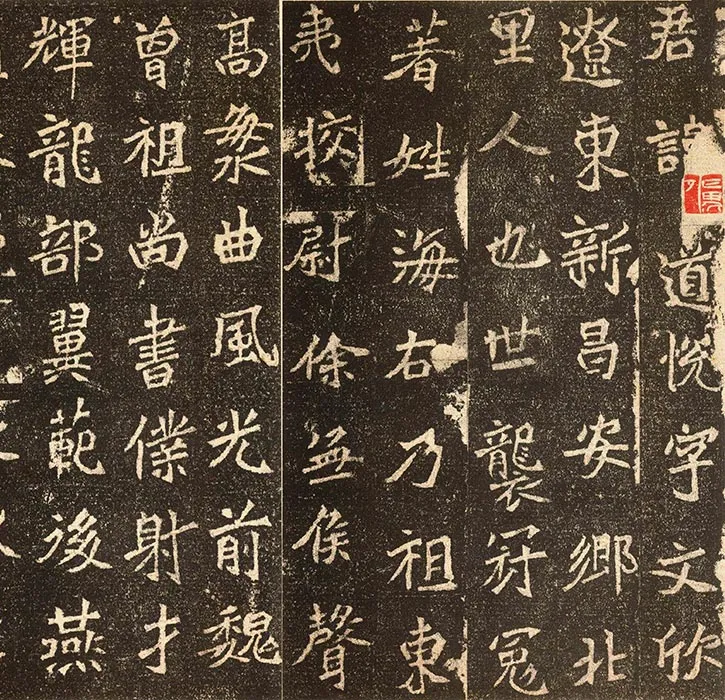 君諱道悅字文欣
遼東新昌安鄉北
里人也世襲冠冕
著姓海右乃祖東
夷挍尉徐無侯聲
高海曲風光前魏
曾祖尚書僕射才
輝龍部翼範後燕